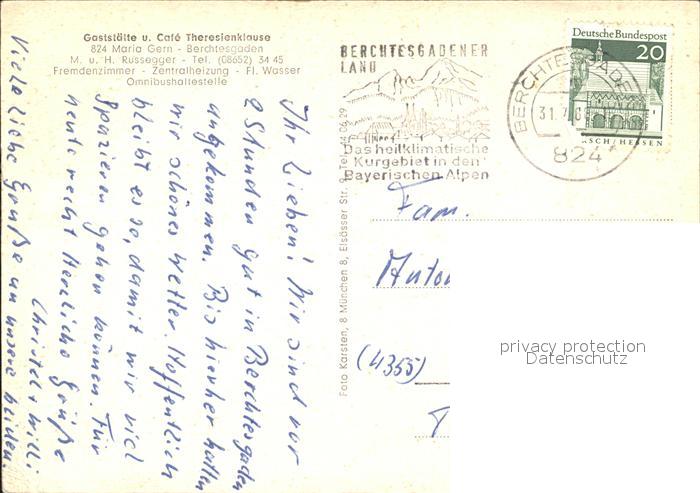 Gaststätte u. Café Theresienklause
824 Maria Gern - Berchtesgaden
M. u. H. Russegger - Tel. (08652) 34 45
Fremdenzimmer - Zentralheizung - Fl. Wasser
Omnibushaltestelle
Ihr Lieben! Wir sind vor
2 Stunden gut in Berchtesgaden
angekommen. Bis hierher hatten
wir schönes Wetter. Hoffentlich
bleibt es so, damit wir viel
Spazieren gehen können. Für
heute recht Herzliche Grüße
Christel + Willi
Viele liebe Grüße an unsere beiden.
Foto Karsten, 8 München 8, Elsässer Str. 9, Tel.
BERCHTESGADENER
LAND
Das heilklimatische
Kurgebiet in den
Bayerischen Alpen
BERCHTESGADEN
31.7.
824
Deutsche Bundespost
20
RSCH/HESSEN
Fam.
(4355)
privacy protection
Datenschutz